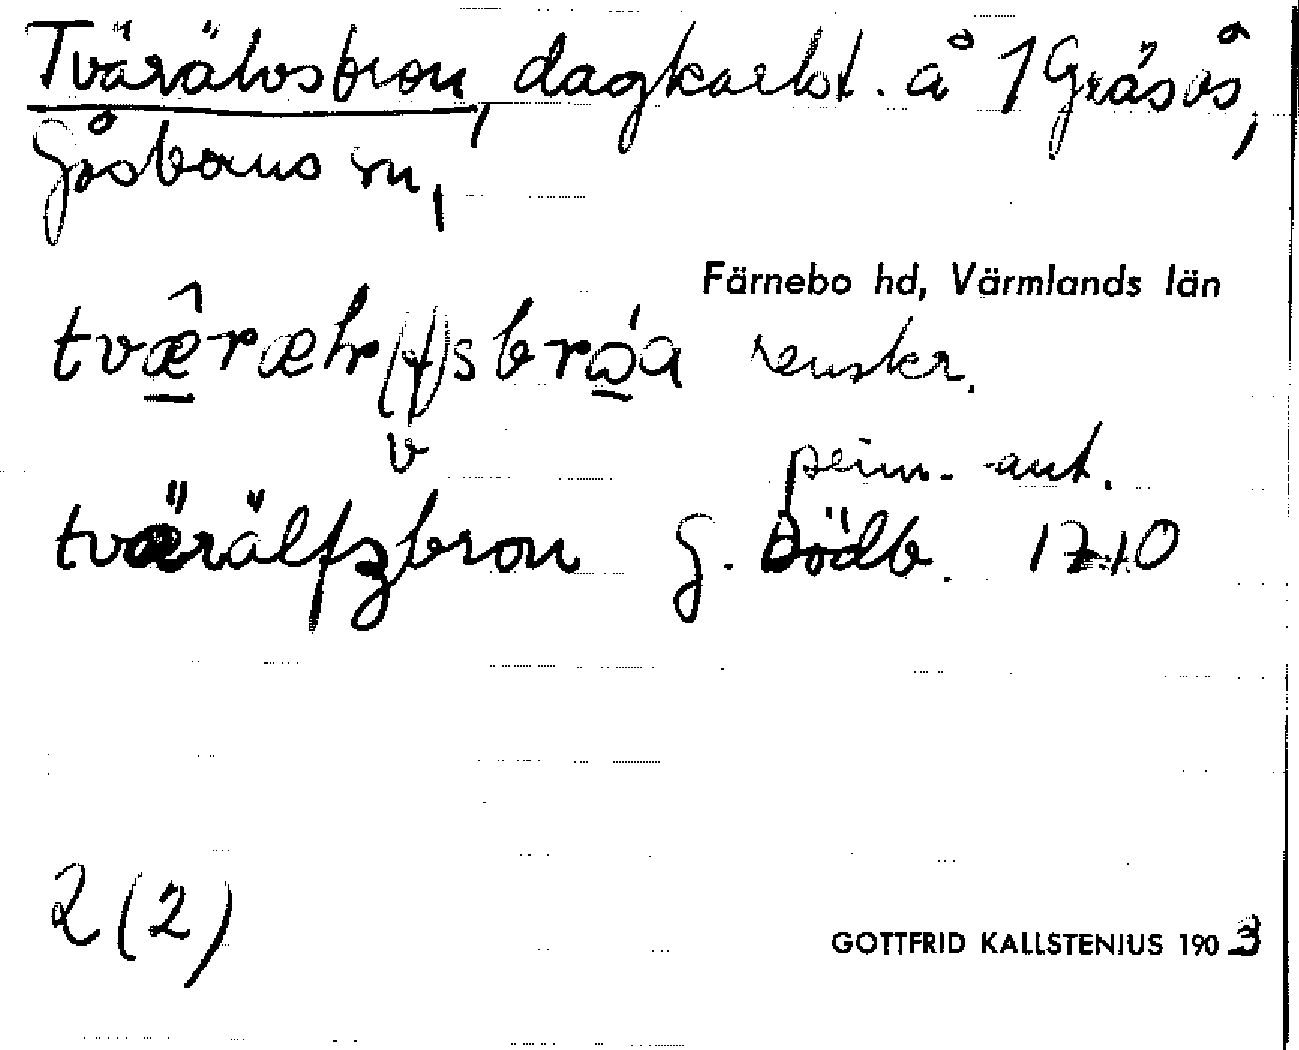 Tvärälvsbron, dagkarlst. å 1 Gråsås,
Gåsborns sn,
Färnebo hd, Värmlands län
tværæhr(f)sbróa renskr.
v
prim. ant.
tvärälfzbron G. Dödb. 1710
2 (2)
GOTTFRID KALLSTENIUS 1903